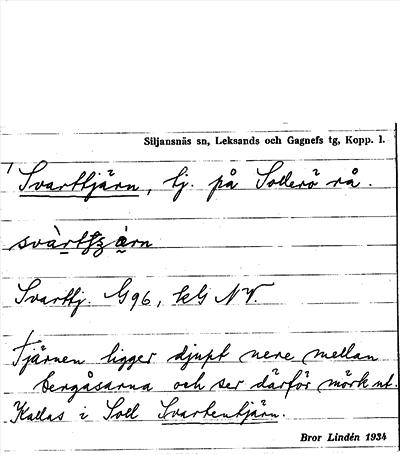 Siljansnäs sn, Leksands och Gagnefs tg, Kopp. l.
Svarttjärn, tj. på Sollerö rå.
Svarttj. G96, kG NV.
Tjärnen ligger djupt nere mellan
bergåsarna och ser därför mörk ut.
Kallas i Soll Svartentjärn.
Bror Lindén 1934